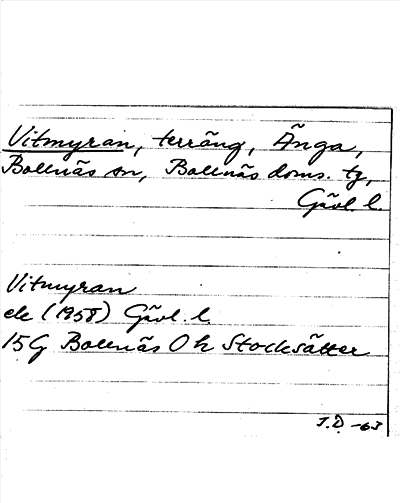 Vitmyran, terräng, Änga,
Bollnäs sn, Bollnäs doms. tg,
Gävl. l.
Vitmyran
ek (1958) Gävl. l.
15G Bollnäs O h Stocksätter
J.D. -63